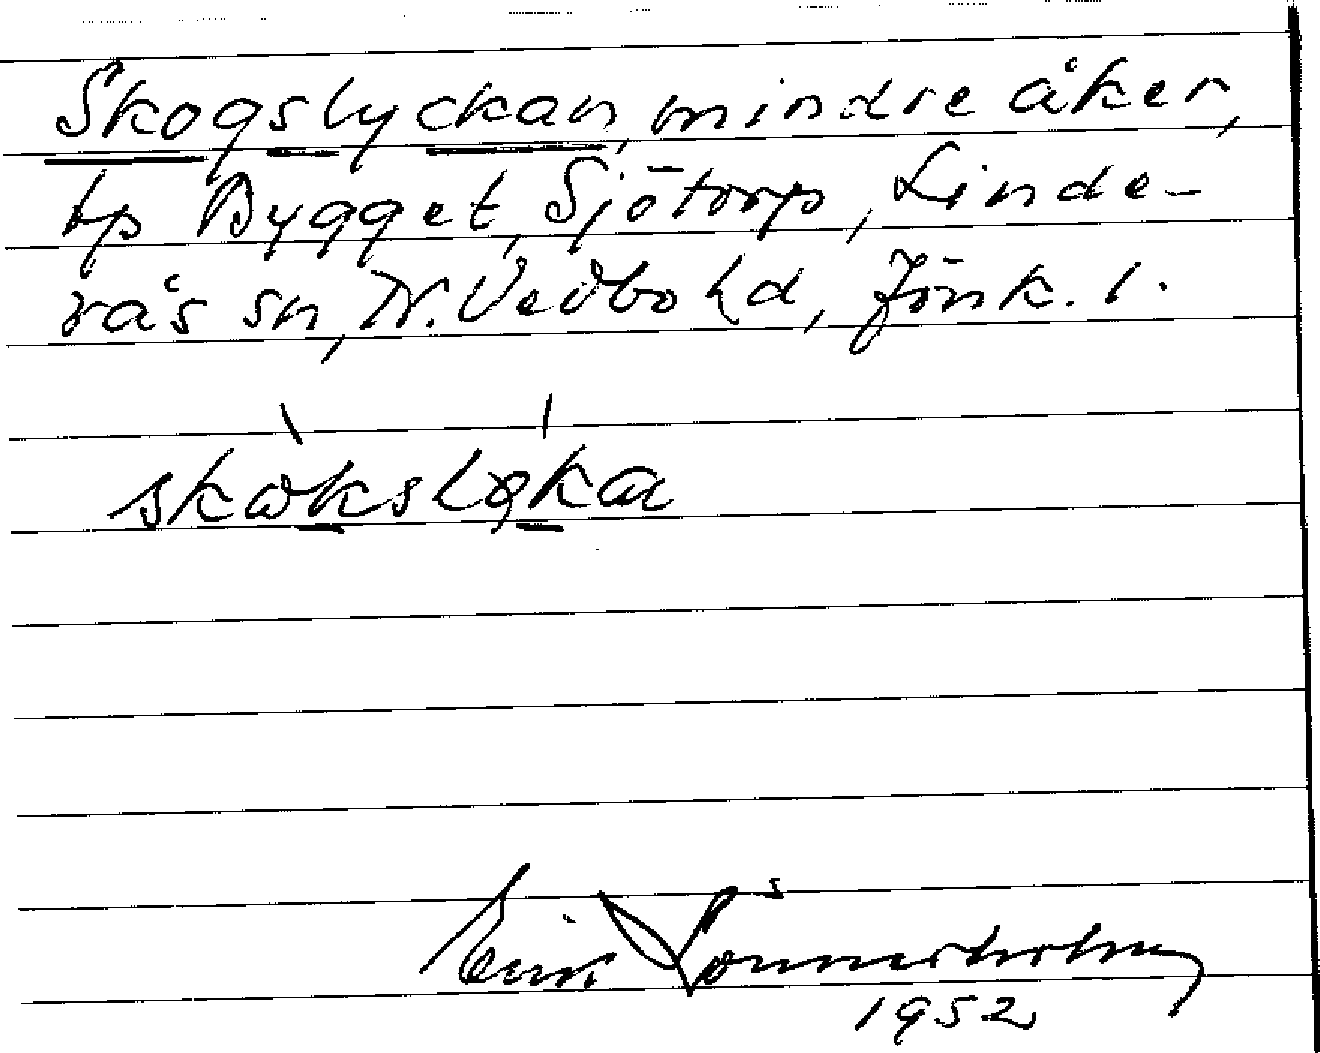 Skogslyckan, mindre åker,
tp Bygget, Sjötorp, Linde-
rås sn, N. Vedbo hd, Jönk. l.
skωkslọka
1952